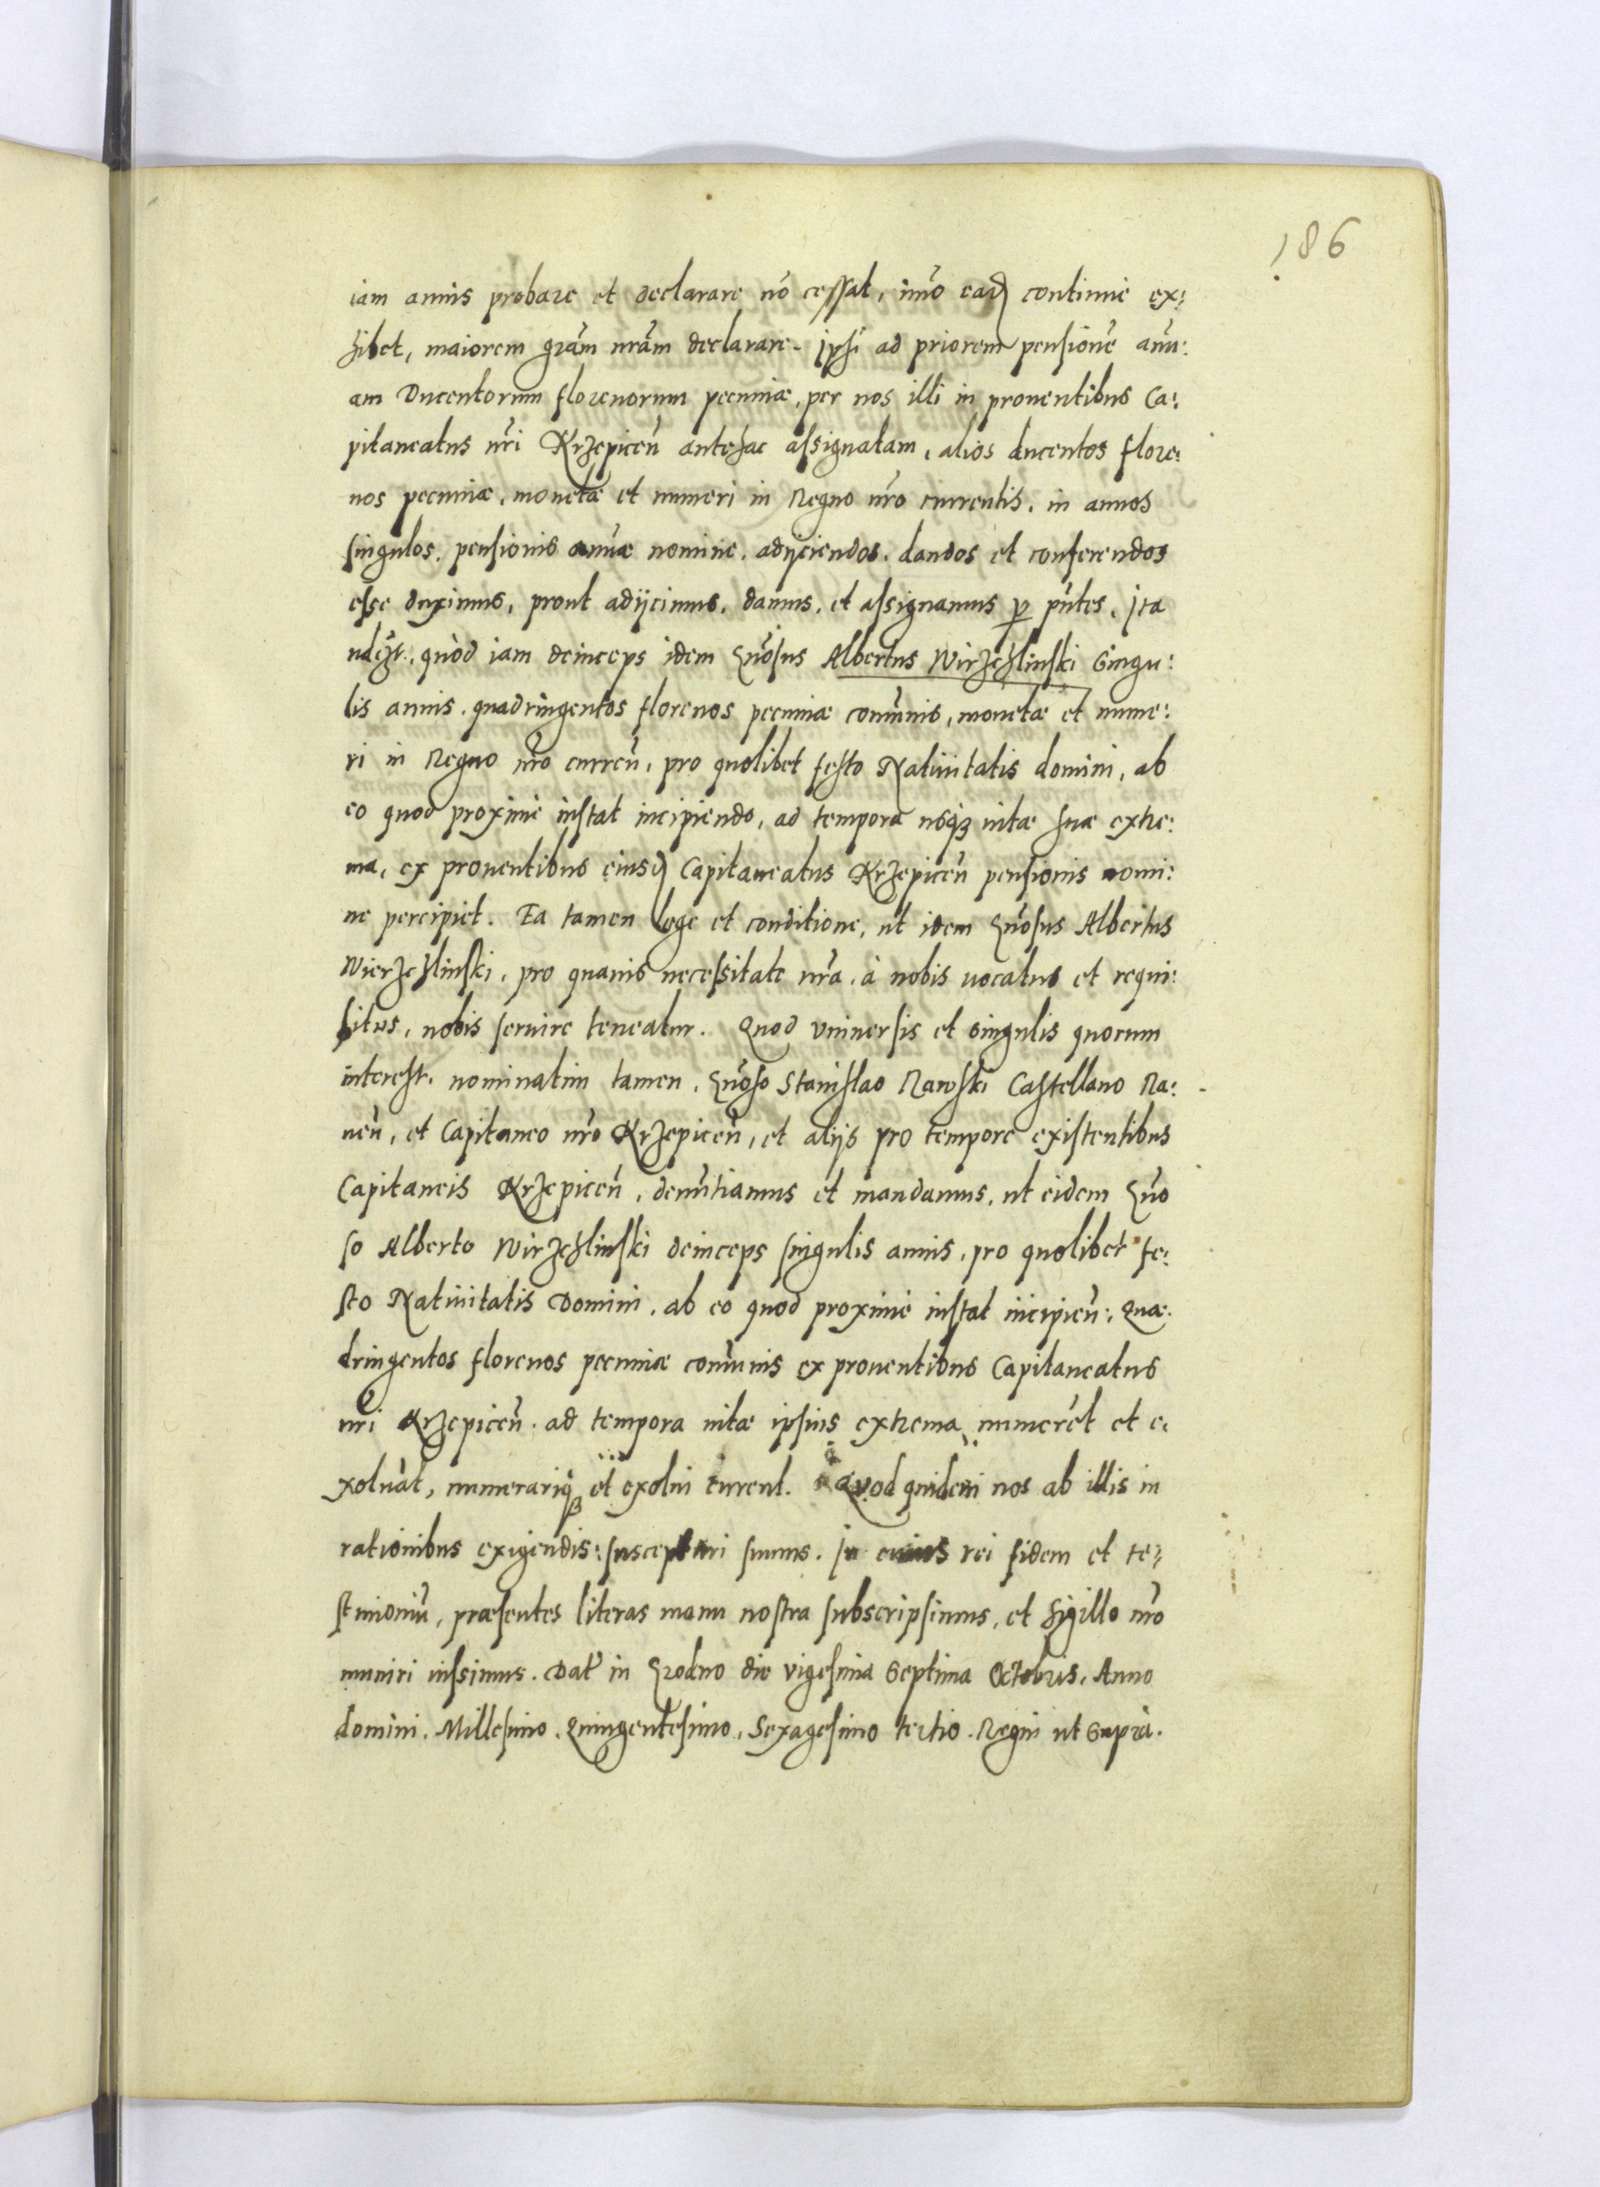 186
iam annis probare et declarare nō cessat, im̄o eadē continue ex:
hibet, maiorem grām nrām declarare. ipsi ad priorem pensionē annu:
am Ducentorum florenorum pecuniæ, per nos illi in prouentibus Ca:
pitaneatus nr̄i Krzepiceñ antehac assignatam, alios ducentos flore:
nos pecuniæ, monetæ et numeri in Regno nr̄o currentis, in annos
singulos, pensionis annuæ nomine, adijciendos, dandos et conferendos
esse duximus, prout adijcimus, damus, et assignamus p pn̄tes, Ita
uidelzt, quòd iam deinceps idem Gn̄osus Albertus Wirzchlinski Singu:
lis annis, quadringentos florenos pecuniæ com̄unis, monetæ et nume:
ri in Regno nr̄o curreñ, pro quolibet festo Natiuitatis domini, ab
eo quod proxime instat incipiendo, ad tempora usq; uitæ suæ extre:
ma, ex prouentibus eiusd Capitaneatus Krzepiceñ pensionis nomi:
ne percipiet. Ea tamen lege et conditione, ut idem Gn̄osus Albertus
Wierzchlinski, pro quauis necessitate nr̄a, à nobis uocatus et requi:
situs, nobis seruire teneatur. Quod Vniuersis et singulis quorum
interest, nominatim tamen, Gn̄oso Stanislao Rawski Castellano Ra:
ueñ, et Capitaneo nr̄o Krzepiceñ, et alijs pro tempore existentibus
Capitaneis Krzepiceñ, denūtiamus et mandamus, ut eidem Gn̄o
so Alberto Wirzchlinski deinceps singulis annis, pro quolibet fe:
sto Natiuitatis Domini, ab eo quod proxime instat incipieñ: Qua:
dringentos florenos pecuniæ com̄unis ex prouentibus Capitaneatus
nr̄i Krzepiceñ, ad tempora uitæ ipsius extrema numerēt et e:
xoluāt, numerariq; et exolui curent. Quod quidem nos ab illis in
rationibus exigendis: suscepturi sumus. In cuius rei fidem et te:
stimoniū, præsentes literas manu nostra subscripsimus, et sigillo nr̄o
muniri iussimus. Dat in Grodno die vigesima Septima Octobris, Anno
domini, Millesimo, Quingentesimo, Sexagesimo tertio. Regni ut Supra.